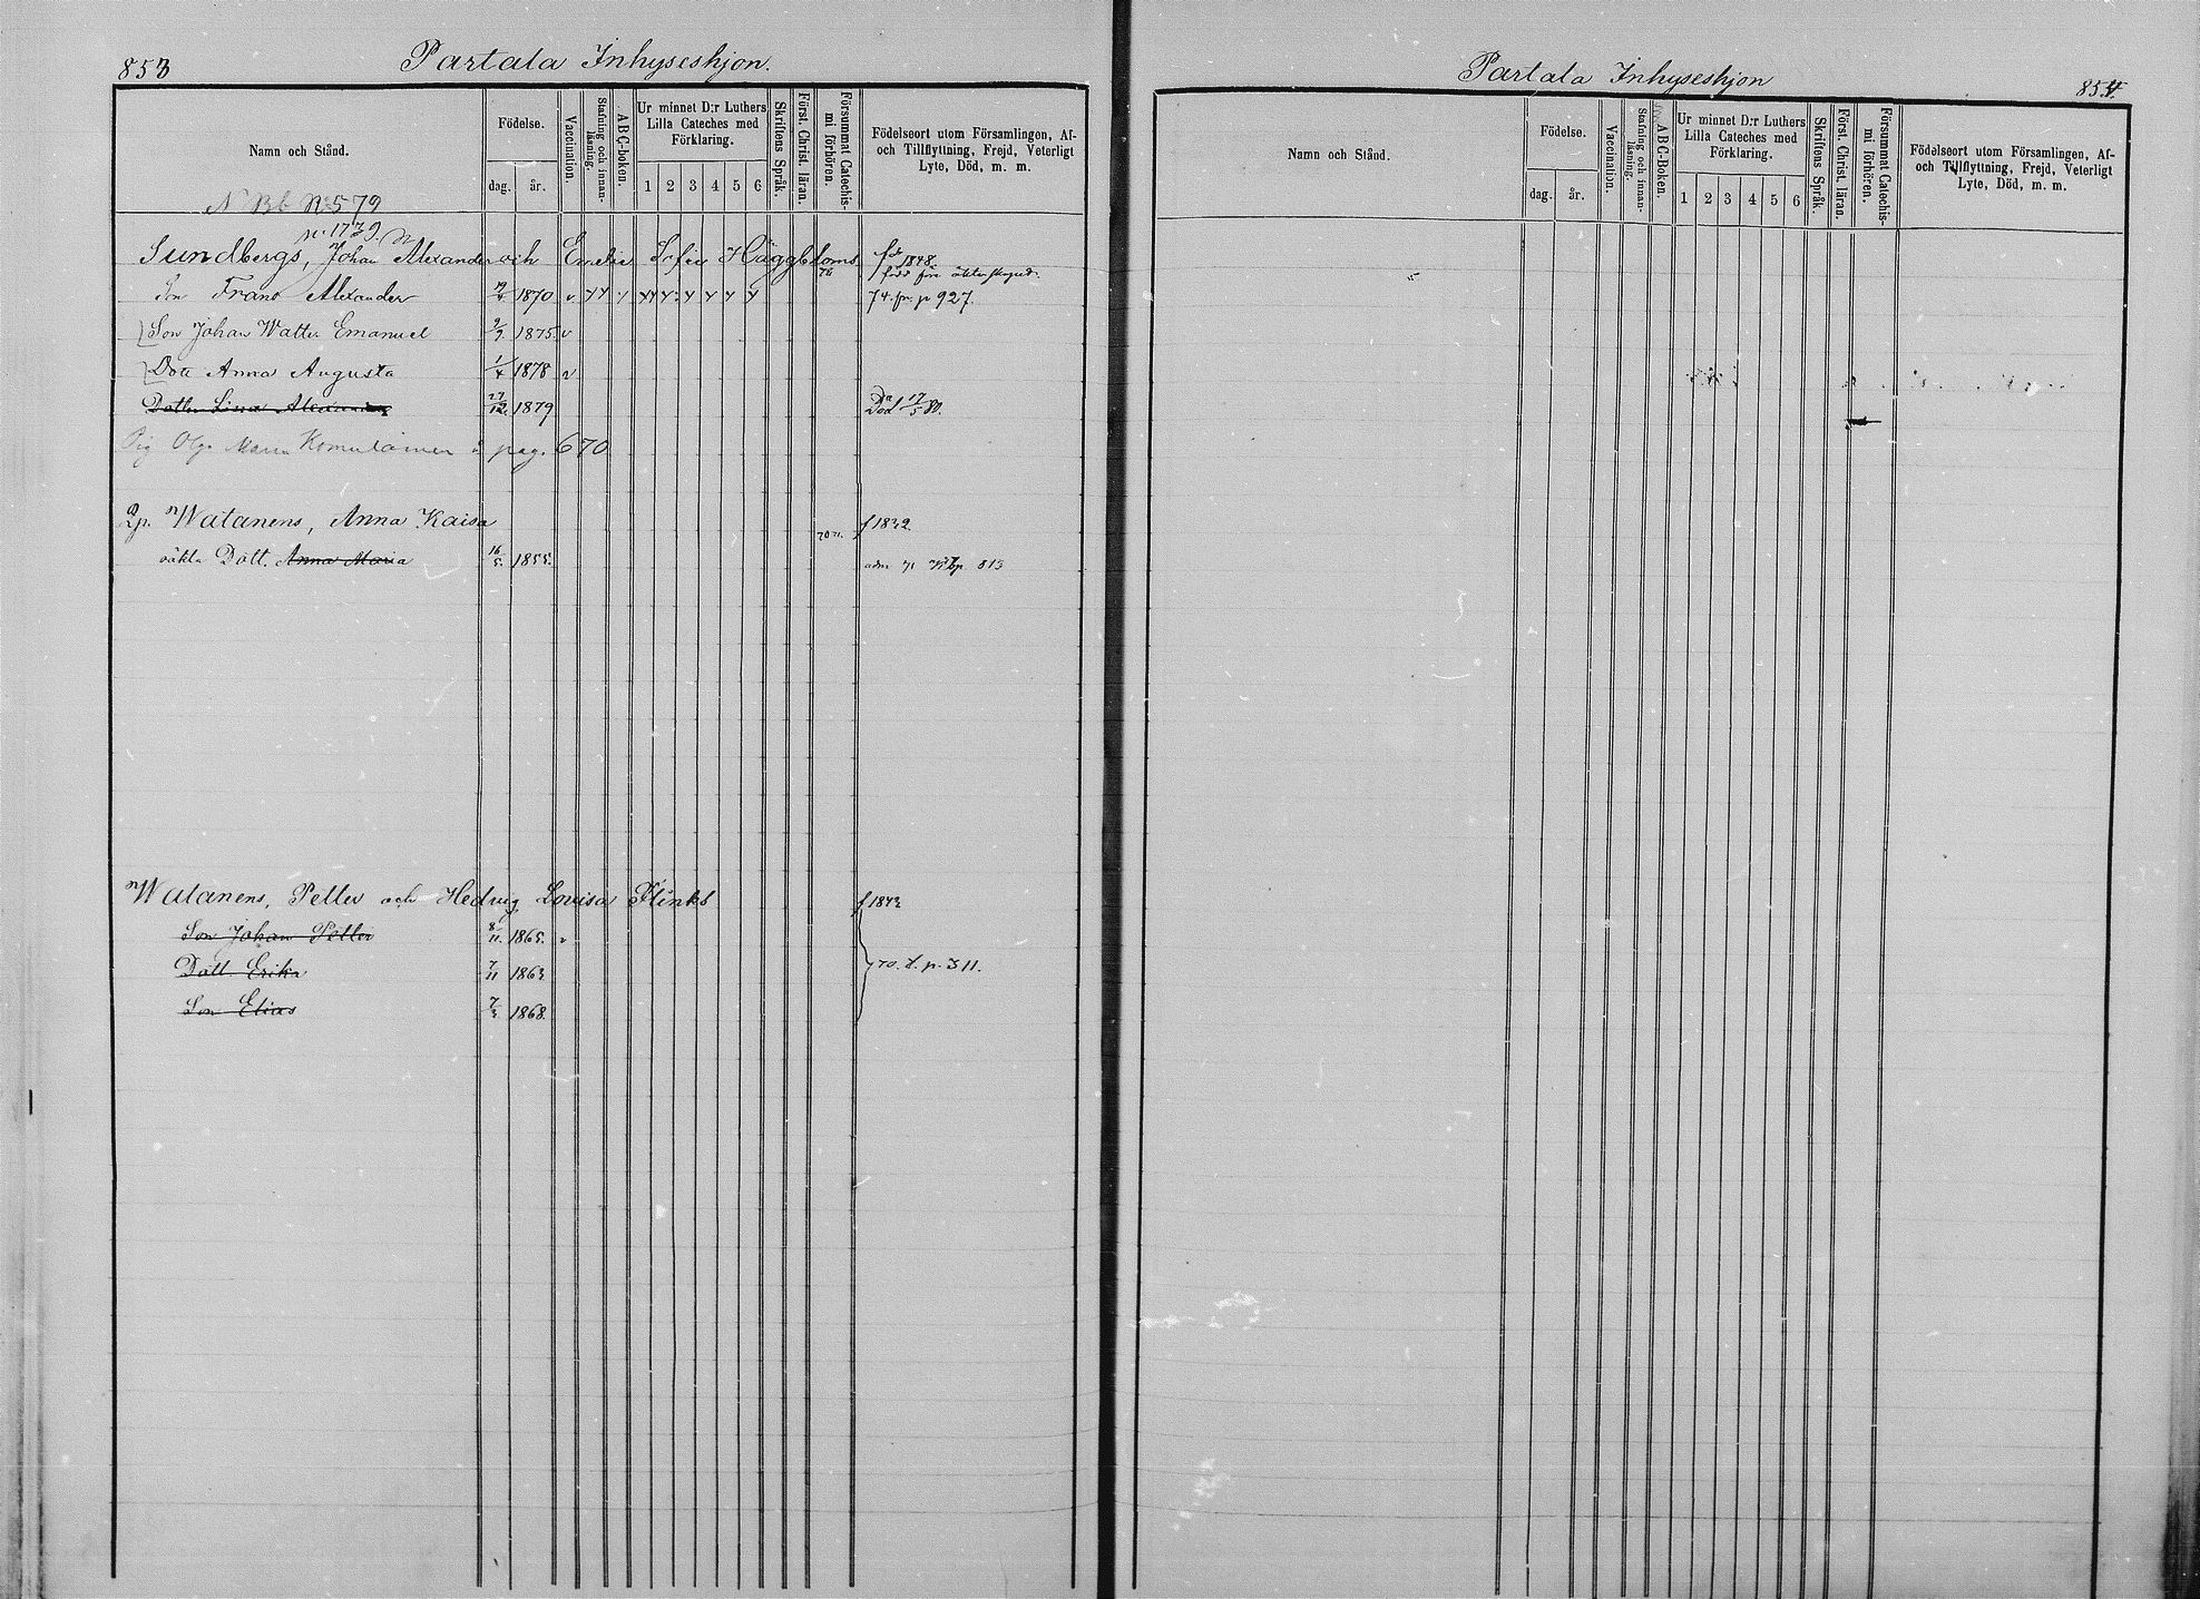 853
Partala Inhyseshjon.
Namn och Stånd.
Födelse.
dag.
år.
Vaccination.
Stafning och innanläsning.
ABC-boken.
Ur minnet D:r Luthers Lilla Cateches med Förklaring.
1 2 3 4 5 6
Skriftens Språk.
Först. Christ. läran.
Försummat Catechismi förhören.
Födelseort utom Församlingen, Af-
och Tillflyttning, Frejd, Veterligt
Lyte, Död, m. m.
N Bb No 579
N. 1779.
Sundbergs, Johan Alexander och Emelie Sofia Häggbloms 1848.
född före äktenskapet.
Son Frans Alexander 1870 v 74. fr. p 927.
Son Johan Walter Emanuel 9/9. 1875. v
Dott Anna Augusta 1/4 1878 v
Dotter Lisa 27/12. 1879 Död 17/5 80.
Pig Olga Maria Komulainen å pag. 670
Watanens, Anna Kaisa f 1832
oäkta Dott. Anna Maria 16/5. 1855. 813
Watanens, Petter och Hedvig Lovisa Flinks f 1843
Son Johan Petter 8/11. 1865. v
Dott Erika 7/11 1863 70. t. p. 311.
Son Elias 7/3 1868.
Partala Inhyseshjon
854.
Namn och Stånd.
Födelse.
dag.
år.
Vaccination.
Stafning och innanläsning.
ABC-Boken.
Ur minnet D:r Luthers
Lilla Cateches med
Förklaring.
1 2 3 4 5 6
Skriftens Språk.
Först. Christ. läran.
Försummat Catechismi förhören.
Födelseort utom Församlingen, Af-
och Tillflyttning, Frejd, Veterligt
Lyte, Död, m. m.